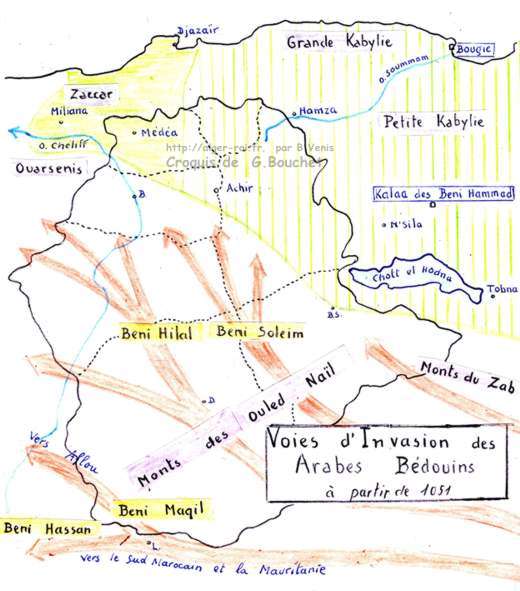 Djazaïr
Grande Kabylie
Bougie
O. Soummam
Zaccar
Miliana
Hamza
Médéa
Petite Kabylie
O. Cheliff
http://alger-roi.fr, par B.Venis
Croquis de G.Bouchet
Ouarsenis
Achir
B.
Kalaa des Beni Hammad
M'Sila
Chott el Hodna
Tobna
B.S.
Beni Hilal
Beni Soleim
Monts du Zab
D.
Monts des Ouled Naïl
Vers Aflou
Voies d'Invasion des
Arabes Bédouins
à partir de 1051
Beni Maqil
Beni Hassan
L.
vers le Sud Marocain et la Mauritanie